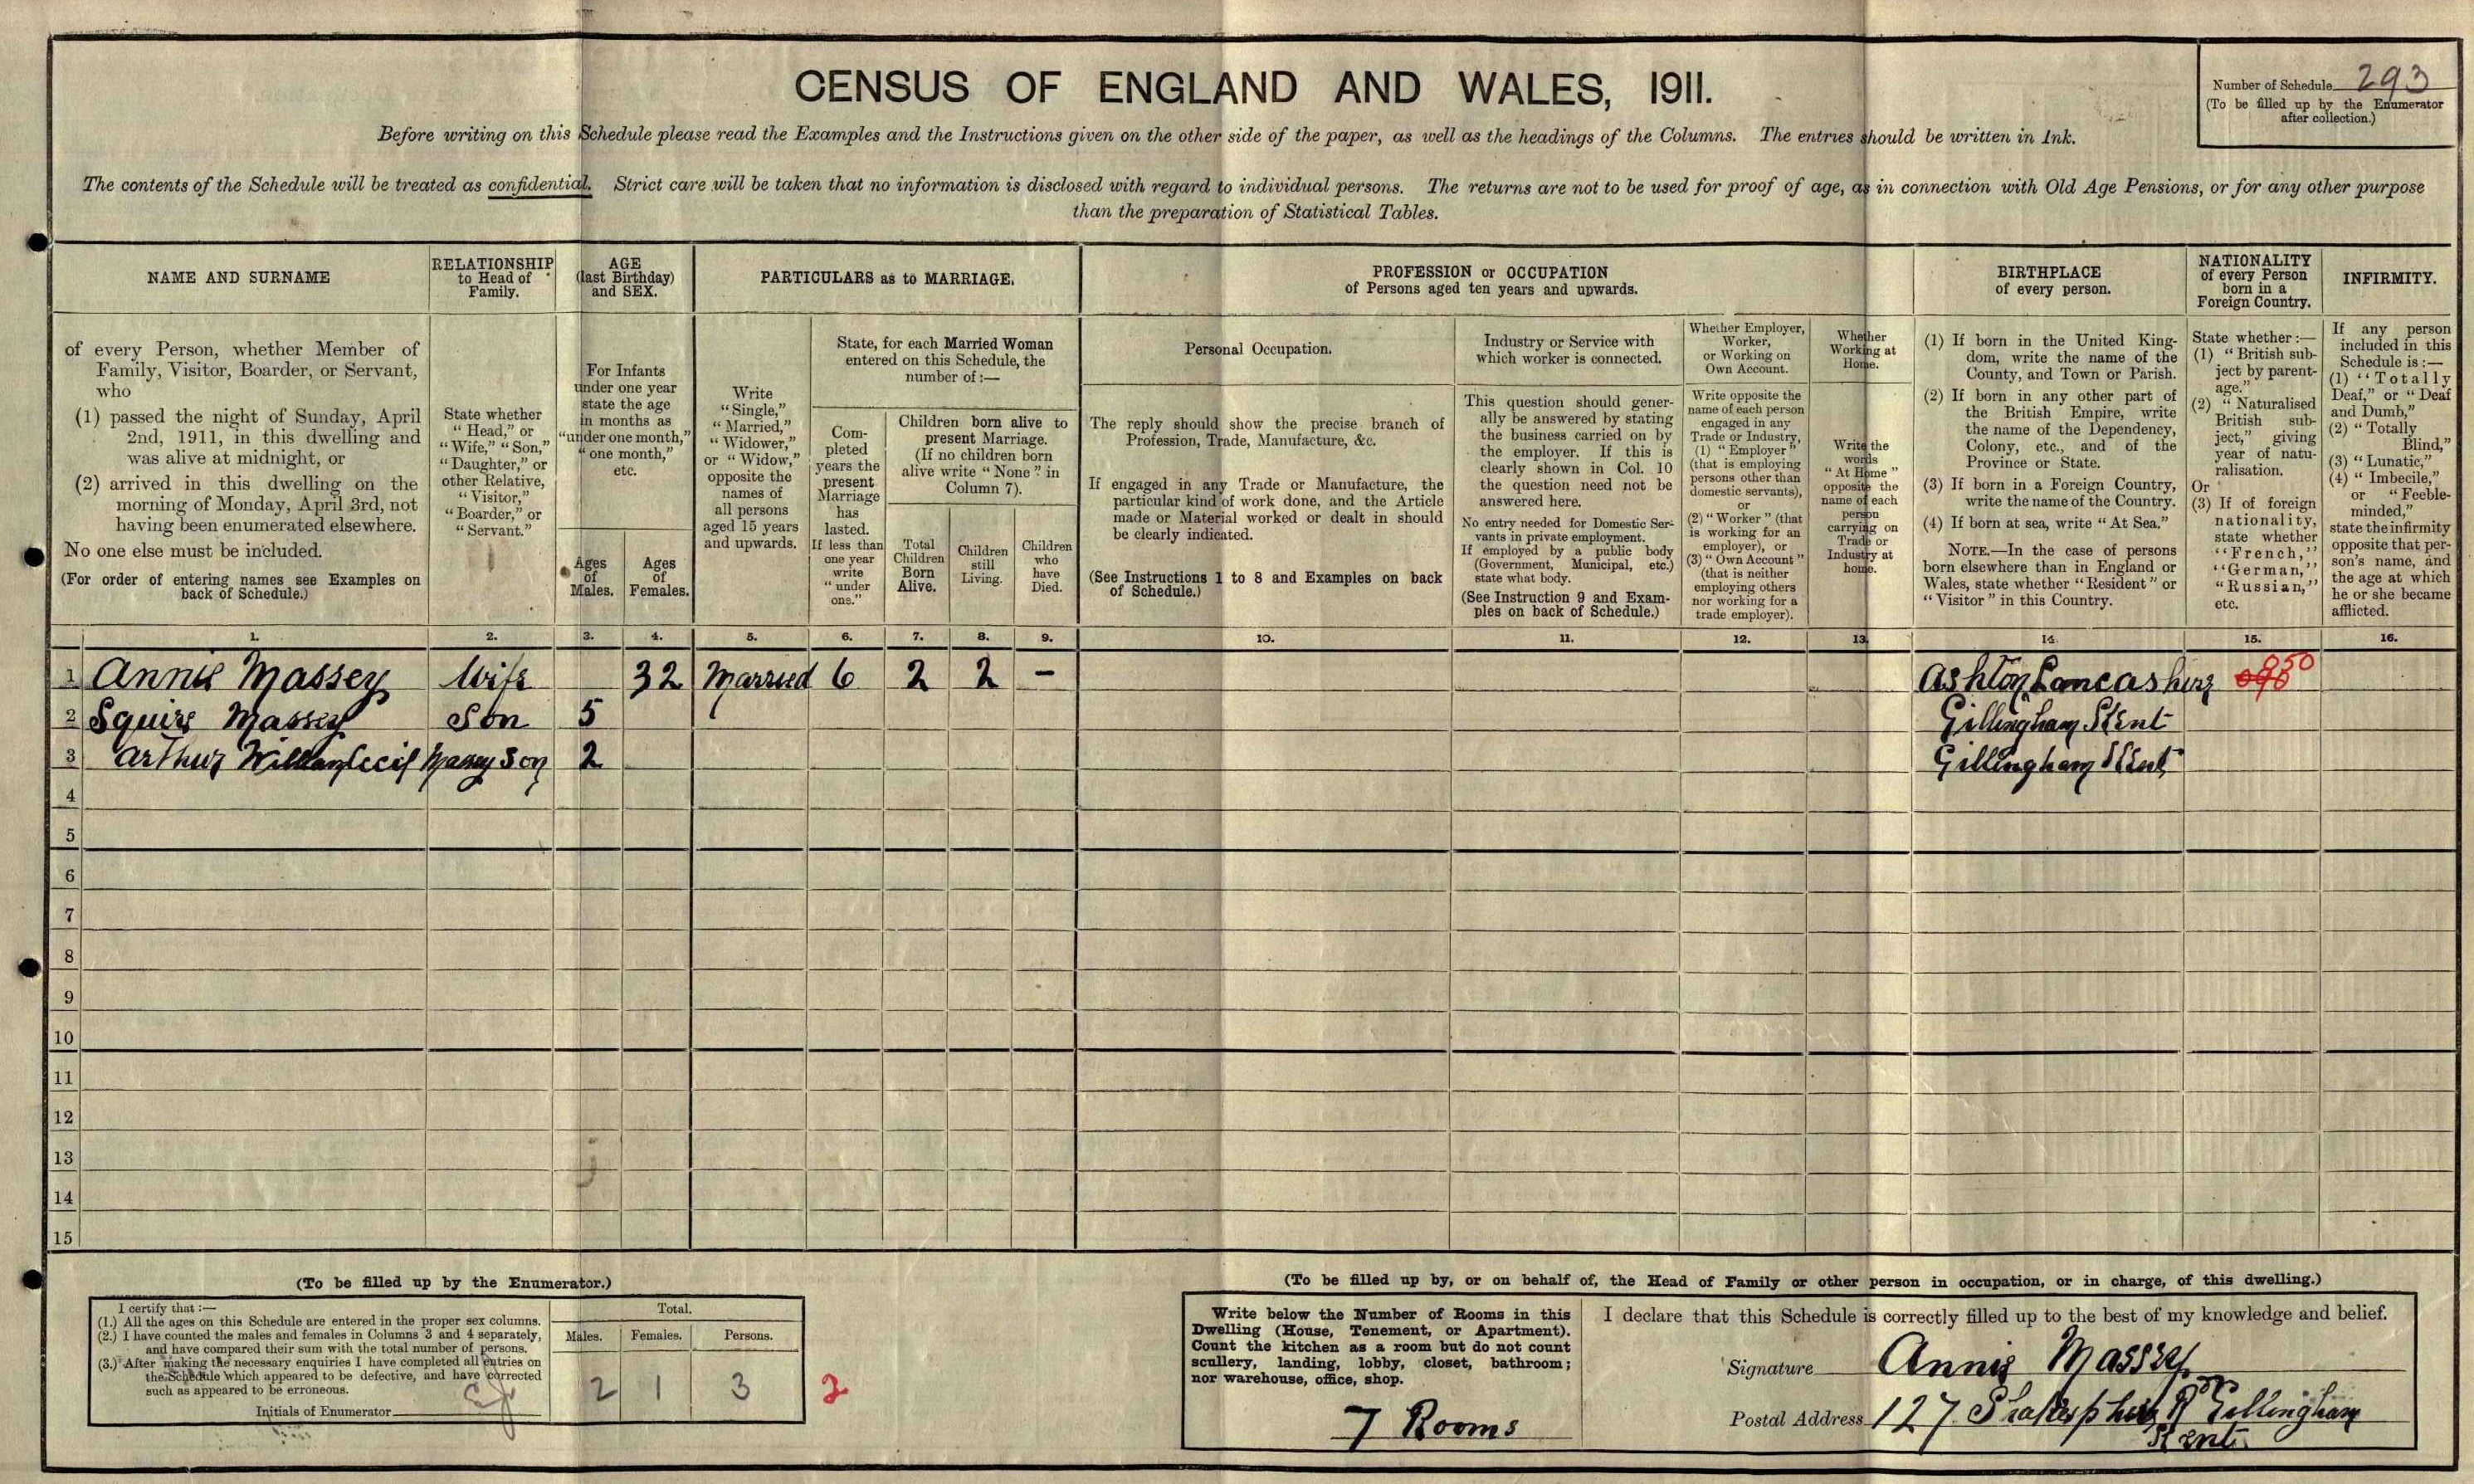 CENSUS OF ENGLAND AND WALES, 1911.
Number of Schedule 293
(To be filled up by the Enumerator
after collection.)
Before writing on this Schedule please read the Examples and the Instructions given on the other side of the paper, as well as the headings of the Columns. The entries should be written in Ink.
The contents of the Schedule will be treated as confidential. Strict care will be taken that no information is disclosed with regard to individual persons. The returns are not to be used for proof of age, as in connection with Old Age Pensions, or for any other purpose
than the preparation of Statistical Tables.
NAME AND SURNAME
of every Person, whether Member of
Family, Visitor, Boarder, or Servant,
who
(1) passed the night of Sunday, April
2nd, 1911, in this dwelling and
was alive at midnight, or
(2) arrived in this dwelling on the
morning of Monday, April 3rd, not
having been enumerated elsewhere.
No one else must be included.
(For order of entering names see Examples on
back of Schedule.)
RELATIONSHIP
to Head of
Family.
State whether
"Head," or
"Wife," "Son,"
"Daughter," or
other Relative,
"Visitor,"
"Boarder," or
"Servant."
AGE
(last Birthday)
and SEX.
For Infants
under one year
state the age
in months as
"under one month,"
"one month,"
etc.
Ages
of
Males.
Ages
of
Females.
PARTICULARS as to MARRIAGE.
Write
"Single,"
"Married,"
"Widower,"
or "Widow,"
opposite the
names of
all persons
aged 15 years
and upwards.
State, for each Married Woman
entered on this Schedule, the
number of :—
Com-
pleted
years the
present
Marriage
has
lasted.
If less than
one year
write
"under
one."
Children born alive to
present Marriage.
(If no children born
alive write "None" in
Column 7).
Total
Children
Born
Alive.
Children
still
Living.
Children
who
have
Died.
PROFESSION or OCCUPATION
of Persons aged ten years and upwards.
Personal Occupation.
The reply should show the precise branch of
Profession, Trade, Manufacture, &c.
If engaged in any Trade or Manufacture, the
particular kind of work done, and the Article
made or Material worked or dealt in should
be clearly indicated.
(See Instructions 1 to 8 and Examples on back
of Schedule.)
Industry or Service with
which worker is connected.
This question should gener-
ally be answered by stating
the business carried on by
the employer. If this is
clearly shown in Col. 10
the question need not be
answered here.
No entry needed for Domestic Ser-
vants in private employment.
If employed by a public body
(Government, Municipal, etc.)
state what body.
(See Instruction 9 and Exam-
ples on back of Schedule.)
Whether Employer,
Worker,
or Working on
Own Account.
Write opposite the
name of each person
engaged in any
Trade or Industry,
(1) "Employer"
(that is employing
persons other than
domestic servants),
or
(2) "Worker" (that
is working for an
employer), or
(3) "Own Account"
(that is neither
employing others
nor working for a
trade employer).
Whether
Working at
Home.
Write the
words
"At Home"
opposite the
name of each
person
carrying on
Trade or
Industry at
home.
BIRTHPLACE
of every person.
(1) If born in the United King-
dom, write the name of the
County, and Town or Parish.
(2) If born in any other part of
the British Empire, write
the name of the Dependency,
Colony, etc., and of the
Province or State.
(3) If born in a Foreign Country,
write the name of the Country.
(4) If born at sea, write "At Sea."
NOTE.—In the case of persons
born elsewhere than in England or
Wales, state whether "Resident" or
"Visitor" in this Country.
NATIONALITY
of every Person
born in a
Foreign Country.
State whether :—
(1) "British sub-
ject by parent-
age,"
(2) "Naturalised
British sub-
ject," giving
year of natu-
ralisation.
Or
(3) If of foreign
nationality,
state whether
"French,"
"German,"
"Russian,"
etc.
INFIRMITY.
If any person
included in this
Schedule is :—
(1) "Totally
Deaf," or "Deaf
and Dumb,"
(2) "Totally
Blind,"
(3) "Lunatic,"
(4) "Imbecile,"
or "Feeble-
minded,"
state the infirmity
opposite that per-
son's name, and
the age at which
he or she became
afflicted.
1. 2. 3. 4. 5. 6. 7. 8. 9. 10. 11. 12. 13. 14. 15. 16.
1 Annie Massey Wife 32 Married 6 2 2 – Ashton Lancashire 050
2 Squire Massey Son 5 Gillingham Kent
3 Arthur William Cecil Massey Son 2 Gillingham Kent
4
5
6
7
8
9
10
11
12
13
14
15
(To be filled up by the Enumerator.)
I certify that :—
(1.) All the ages on this Schedule are entered in the proper sex columns.
(2.) I have counted the males and females in Columns 3 and 4 separately,
and have compared their sum with the total number of persons.
(3.) After making the necessary enquiries I have completed all entries on
the Schedule which appeared to be defective, and have corrected
such as appeared to be erroneous.
Initials of Enumerator
Total.
Males. Females. Persons.
2 1 3
(To be filled up by, or on behalf of, the Head of Family or other person in occupation, or in charge, of this dwelling.)
Write below the Number of Rooms in this
Dwelling (House, Tenement, or Apartment).
Count the kitchen as a room but do not count
scullery, landing, lobby, closet, bathroom;
nor warehouse, office, shop.
7 Rooms
I declare that this Schedule is correctly filled up to the best of my knowledge and belief.
Signature Annie Massey
Postal Address 127 Gillingham
Kent